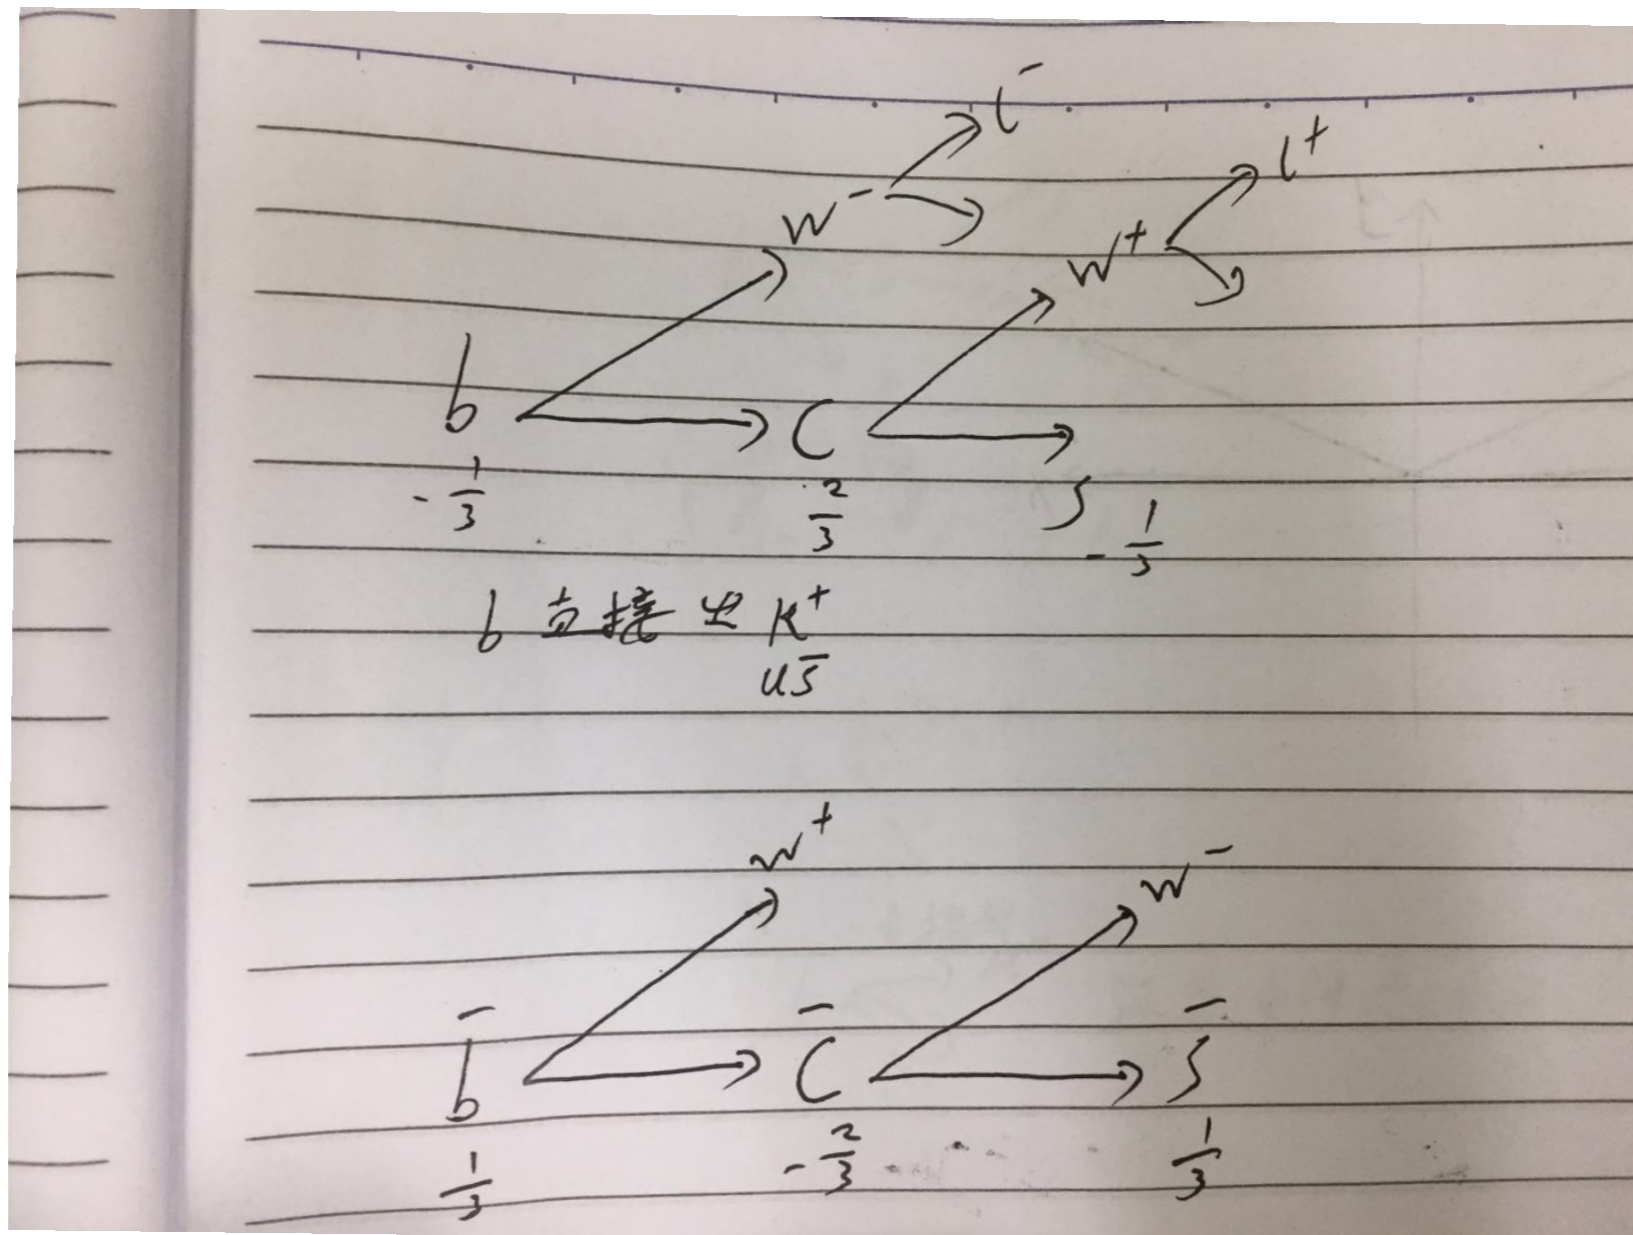 l⁻
l⁺
W⁻
W⁺
b
C
-1/3
2/3
S -1/3
b 直接出 K⁺
us̅
W⁺
W⁻
b̅
C̅
S̅
1/3
-2/3
1/3